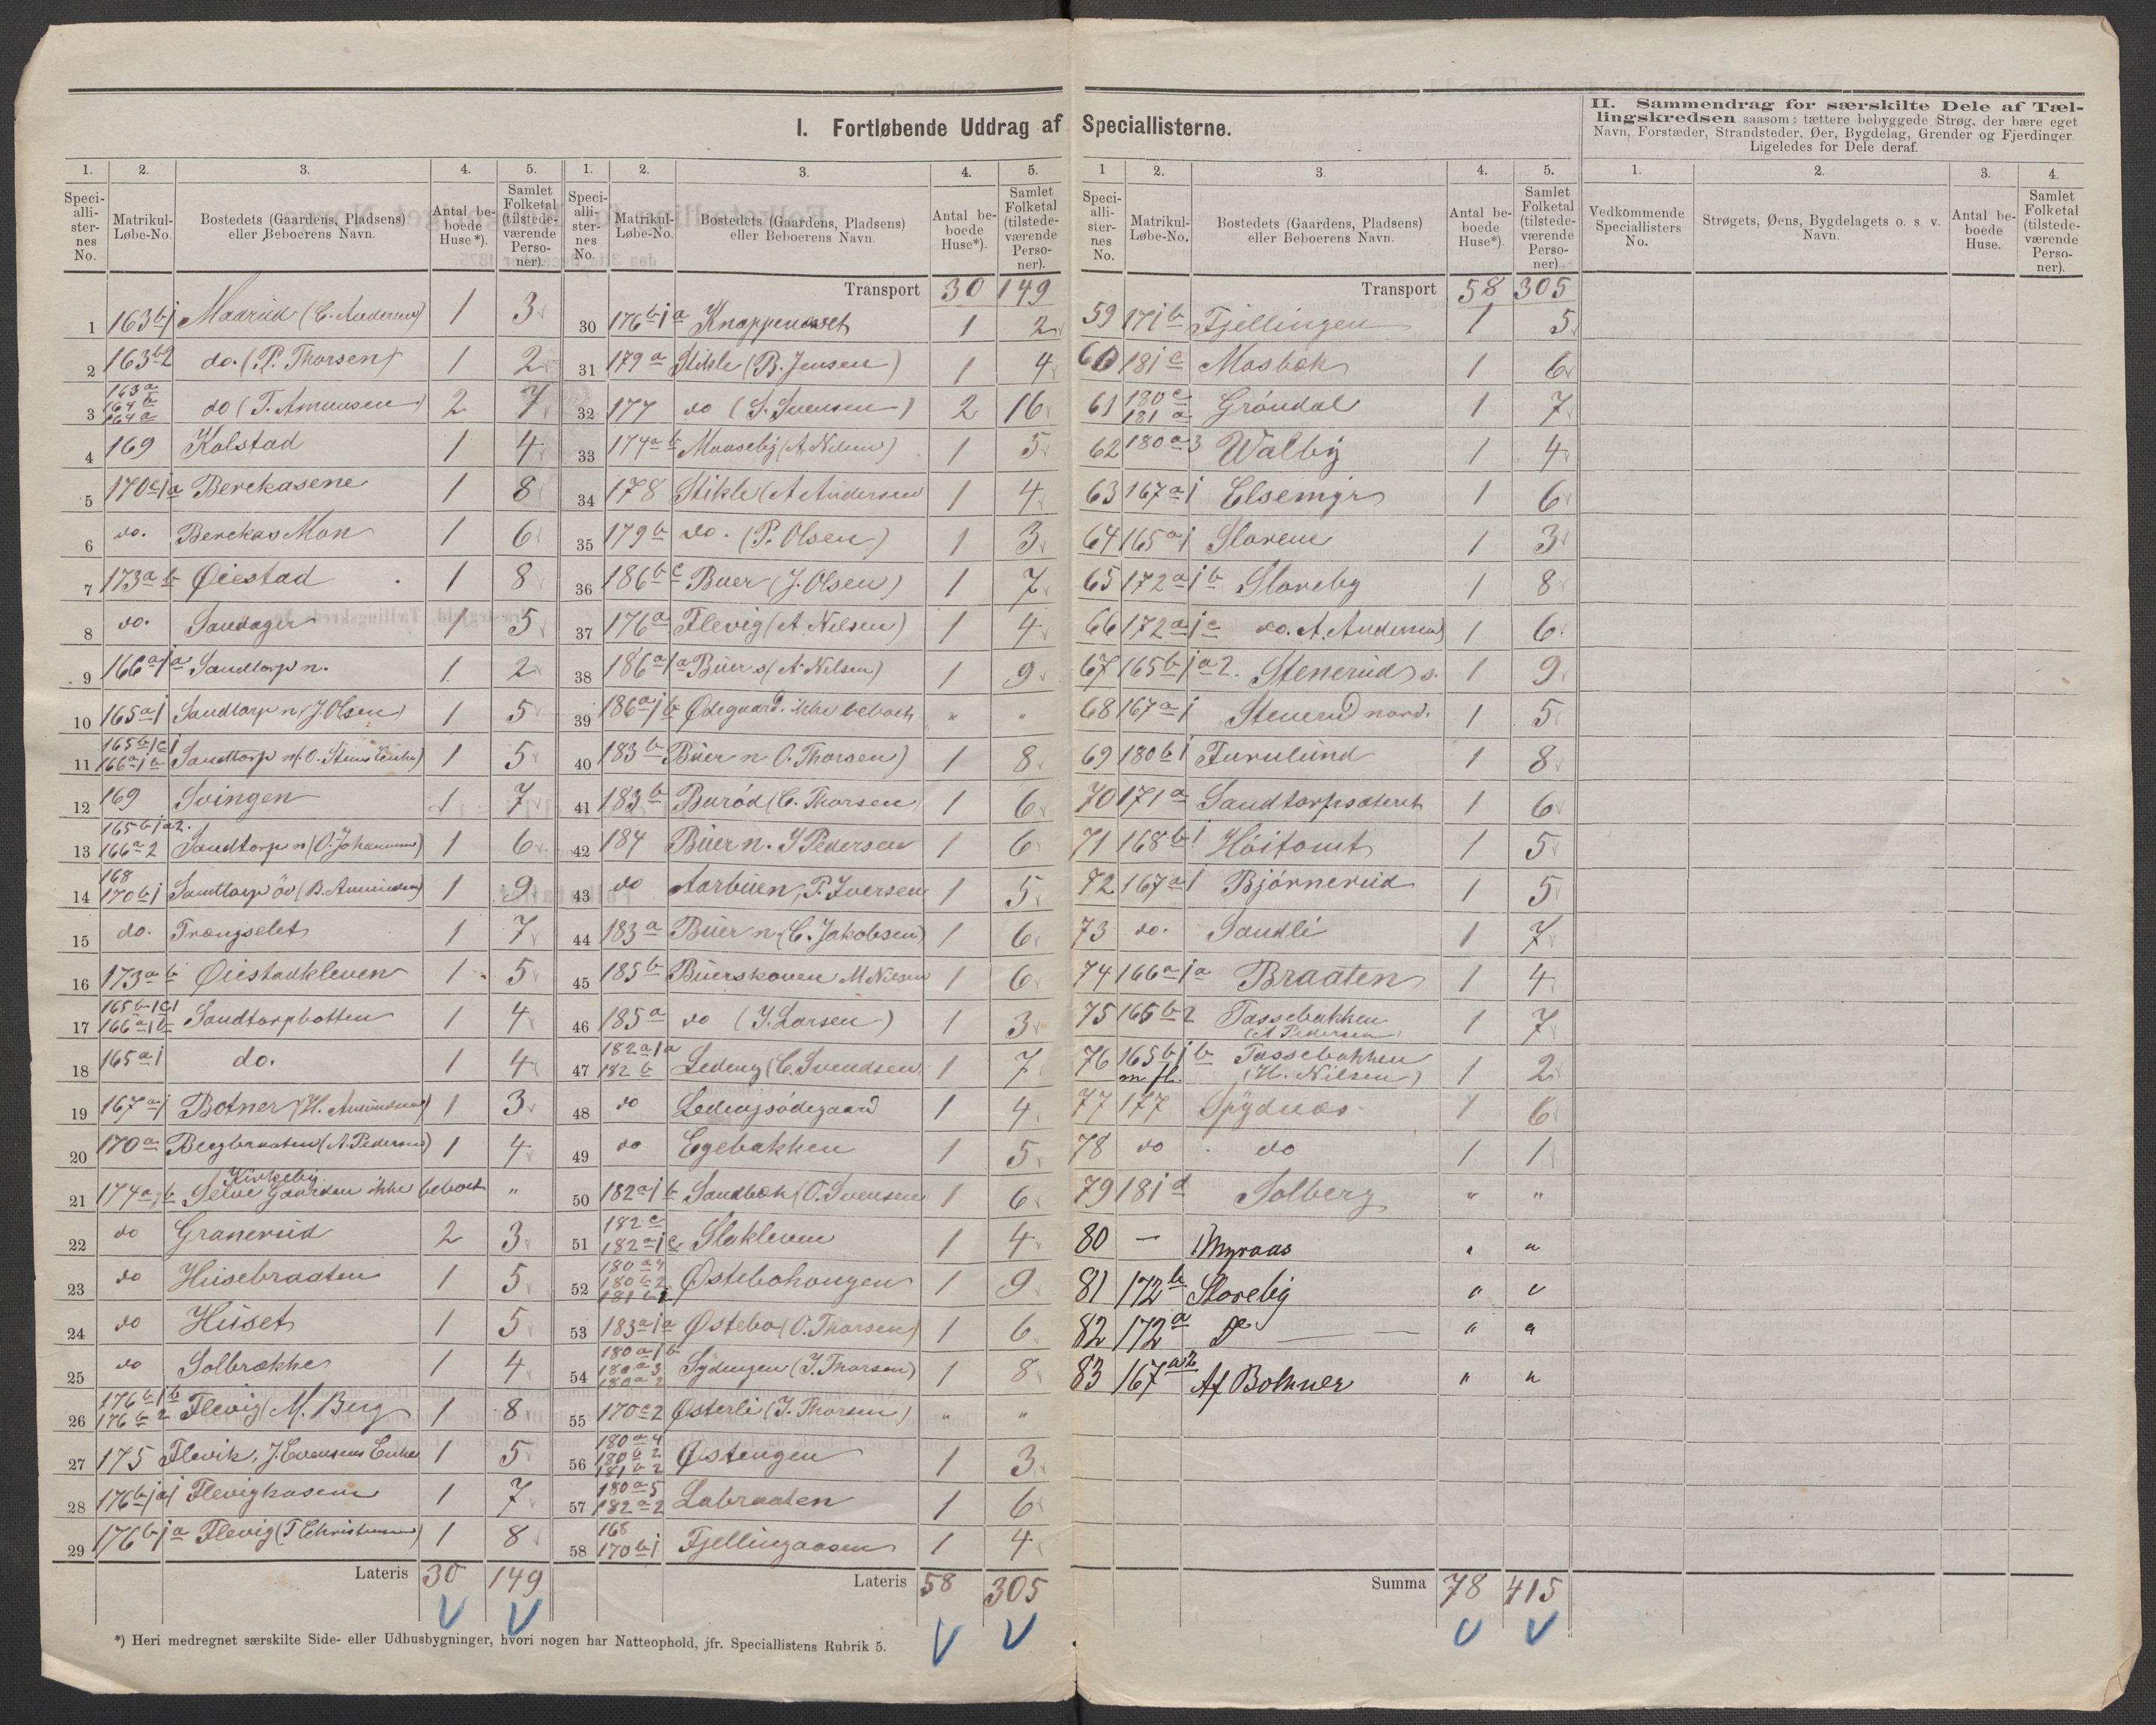 I. Fortløbende Uddrag af Speciallisterne.
II. Sammendrag for særskilte Dele af Tæl-
lingskredsen saasom: tættere bebyggede Strøg, der bære eget
Navn, Forstæder, Strandsteder, Øer, Bygdelag, Grender og Fjerdinger
Ligeledes for Dele deraf.
1. 2. 3. 4. 5.
Speci-alli-ster-nes No. Matrikul-Løbe-No. Bostedets (Gaardens, Pladsens) eller Beboerens Navn. Antal be-boede Huse*). Samlet Folketal (tilstede-værende Perso-ner).
1 163 b 1 Maarud (C. Andersen) 1 3
2 163 b 2 do. (P. Thorsen) 1 2
3 163 a 164 b 164 a do (T. Amunsen) 2 7
4 169 Kolstad 1 4
5 170 c 1 a Berekasene 1 8
6 do. Berekas Mon 1 6
7 173 a b Øiestad 1 8
8 do. Sandager 1 5
9 166 a 1 a Sandtorp n. 1 2
10 165 a 1 Sandtorp n (J. Olsen) 1 5
11 165 b 1 c 1 166 a 1 b Sandtorp n (O. Stens Enke) 1 5
12 169 Svingen 1 7
13 165 b 1 a 2. 166 a 2 Sandtorp n (O. Johannesen) 1 6
14 168 170 b 1 Sandtorp öv (B. Amundsen) 1 9
15 do. Trængselet 1 7
16 173 a b Øiestadkleven 1 5
17 165 b 1 c 1 166 a 1 b Sandtorpbotten 1 4
18 165 a 1 do. 1 4
19 167 a 1 Botner (H. Amundsen) 1 3
20 170 a Bergbraaten (A. Pedersen) 1 4
21 174 a b Kirkeby Selve Gaarden ikke beboet "
22 do Granerud 2 3
23 do Husebraaten 1 5
24 do Huset 1 5
25 do Solbrække 1 4
26 176 b 1 b 176 b 2 Flevig M. Berg 1 8
27 175 Flevik, J. Evensens Enke 1 5
28 176 b 1 a 1 Flevigkasen 1 7
29 176 b 1 a Flevig (T Christensen) 1 8
Lateris 30 149
*) Heri medregnet særskilte Side- eller Udhusbygninger, hvori nogen har Natteophold, jfr. Speciallistens Rubrik 5.
1. 2. 3. 4. 5.
Speci-alli-ster-nes No. Matrikul-Løbe-No. Bostedets (Gaardens, Pladsens) eller Beboerens Navn. Antal be-boede Huse*). Samlet Folketal (tilstede-værende Perso-ner).
Transport 30 149
30 176 b 1 a Knappenæset 1 2
31 179 a Stikle (B. Jensen) 1 4
32 177 do (S. Svensen) 2 16
33 174 a b Maaseby (A. Nilsen) 1 5
34 178 Stikle (A Andersen 1 4
35 179 b do. (P. Olsen) 1 3
36 186 b c Buer (J. Olsen) 1 7
37 176 a Flevig (A. Nilsen) 1 4
38 186 a 1 a Buer s (A. Nilsen) 1 9
39 186 a 1 b Ødegaard. ikke beboet " "
40 183 b Buer n O. Thorsen) 1 8
41 183 b Buröd (C. Thorsen 1 6
42 184 Buer n. J Pedersen 1 6
43 do Aarbuen, P. Iversen 1 5
44 183 a Buer n (C. Jakobsen) 1 6
45 185 b Buerskoven M Nilsen 1 6
46 185 a do (J. Larsen) 1 3
47 182 a 1 a 182 b Ledeng (C. Svendsen 1 7
48 do Ledengsödegaard 1 4
49 do Egebakken 1 5
50 182 a 1 b Sandbek (O. Svensen 1 6
51 182 c 182 a 1 c Slokleven 1 4
52 180 a 4 180 b 2 181 b 2 Østebohougen 1 9
53 183 a 1 a Østebo (O. Thorsen) 1 6
54 180 a 1 b 180 a 3 180 a 2 Sydengen (J. Thorsen) 1 8
55 170 c 2 Østerli (J. Thorsen) " "
56 180 a 4 180 b 2 181 b 2 Østengen 1 3
57 180 a 5 182 a 2 Labraaten 1 6
58 168 170 b 1 Fjellingaasen 1 4
Lateris 58 305
1 2. 3. 4. 5.
Speci-alli-ster-nes No. Matrikul-Løbe-No. Bostedets (Gaardens, Pladsens) eller Beboerens Navn. Antal be-boede Huse*). Samlet Folketal (tilstede-værende Perso-ner).
Transport 58 305
59 171 b Fjellingen 1 5
60 181 c Mosbæk 1 6
61 180 c 181 a Gröndal 1 7
62 180 a 3 Walby 1 4
63 167 a 1 Elsemyr 1 6
64 165 a 1 Slorene 1 3
65 172 a 1 b Sloreby 1 8
66 172 a 1 c do. A. Andersen) 1 6
67 165 b 1 a 2. Stenerud s. 1 9
68 167 a 1 Stenerud nord. 1 5
69 180 b 1 Furulund 1 8
70 171 a Sandtorpsæteret 1 6
71 168 b 1 Höitomt 1 5
72 167 a 1 Björnerud 1 5
73 do. Sandli 1 7
74 166 a 1 a Braaten 1 4
75 165 b 2 Tassebakken (A Pedersen) 1 7
76 165 b 1 b m fl. Tassebakken (H. Nilsen) 1 2
77 177 Spydnæs 1 6
78 do do 1 1
79 181 d Solberg " "
80 — Myraas " "
81 172 b Sloreby " "
82 172 a Do — — " "
83 167 a 2 Af Botnner " "
Summa 78 415
1. 2. 3. 4.
Vedkommende Speciallisters No. Strøgets, Øens, Bygdelagets o. s. v. Navn. Antal be-boede Huse. Samlet Folketal (tilstede-værende Perso-ner).